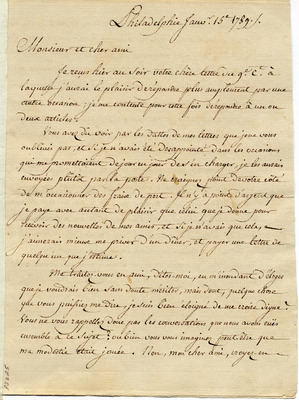 Philadelphie Janv. 15e 1789./.
Monsieur et cher ami
Je reçus hier au Soir votre chère lettre du 9e Ct. à
laquelle j'aurai le plaisir de répondre plus amplement par une
autre occasion; je me contente pour cette fois de répondre à un ou
deux articles.
Vous avez dû voir par les dattes de mes lettres que je ne vous
oubliais pas, et si je n'avais été désapointé dans les occasions
qui me promettaient de jour en jour de s'en charger, je les aurais
envoyées plutôt par la poste. Ne craignez point de votre côté
de m'occasionner des frais de port. Il n'y a point d'argent que
je paye avec autant de plaisir que celui que je donne pour
recevoir des nouvelles de mes amis, et si je n'avais que cela,
j'aimerais mieux me priver d'un dîner, et payer une lettre de
quelqu'un que j'estime.
Me traitez-vous en ami, dites-moi, en m'inondant d'éloges
que je voudrais bien sans doute mériter, mais dont, quelque chose
que vous puissiez me dire, je suis bien éloigné de me croire digne?
Vous ne vous rappellez donc pas les conversations que nous avons eües
ensemble à ce Sujet? ou bien vous vous imaginez peut-être que
ma modestie était jouée. Non, mon cher ami, croyez-en